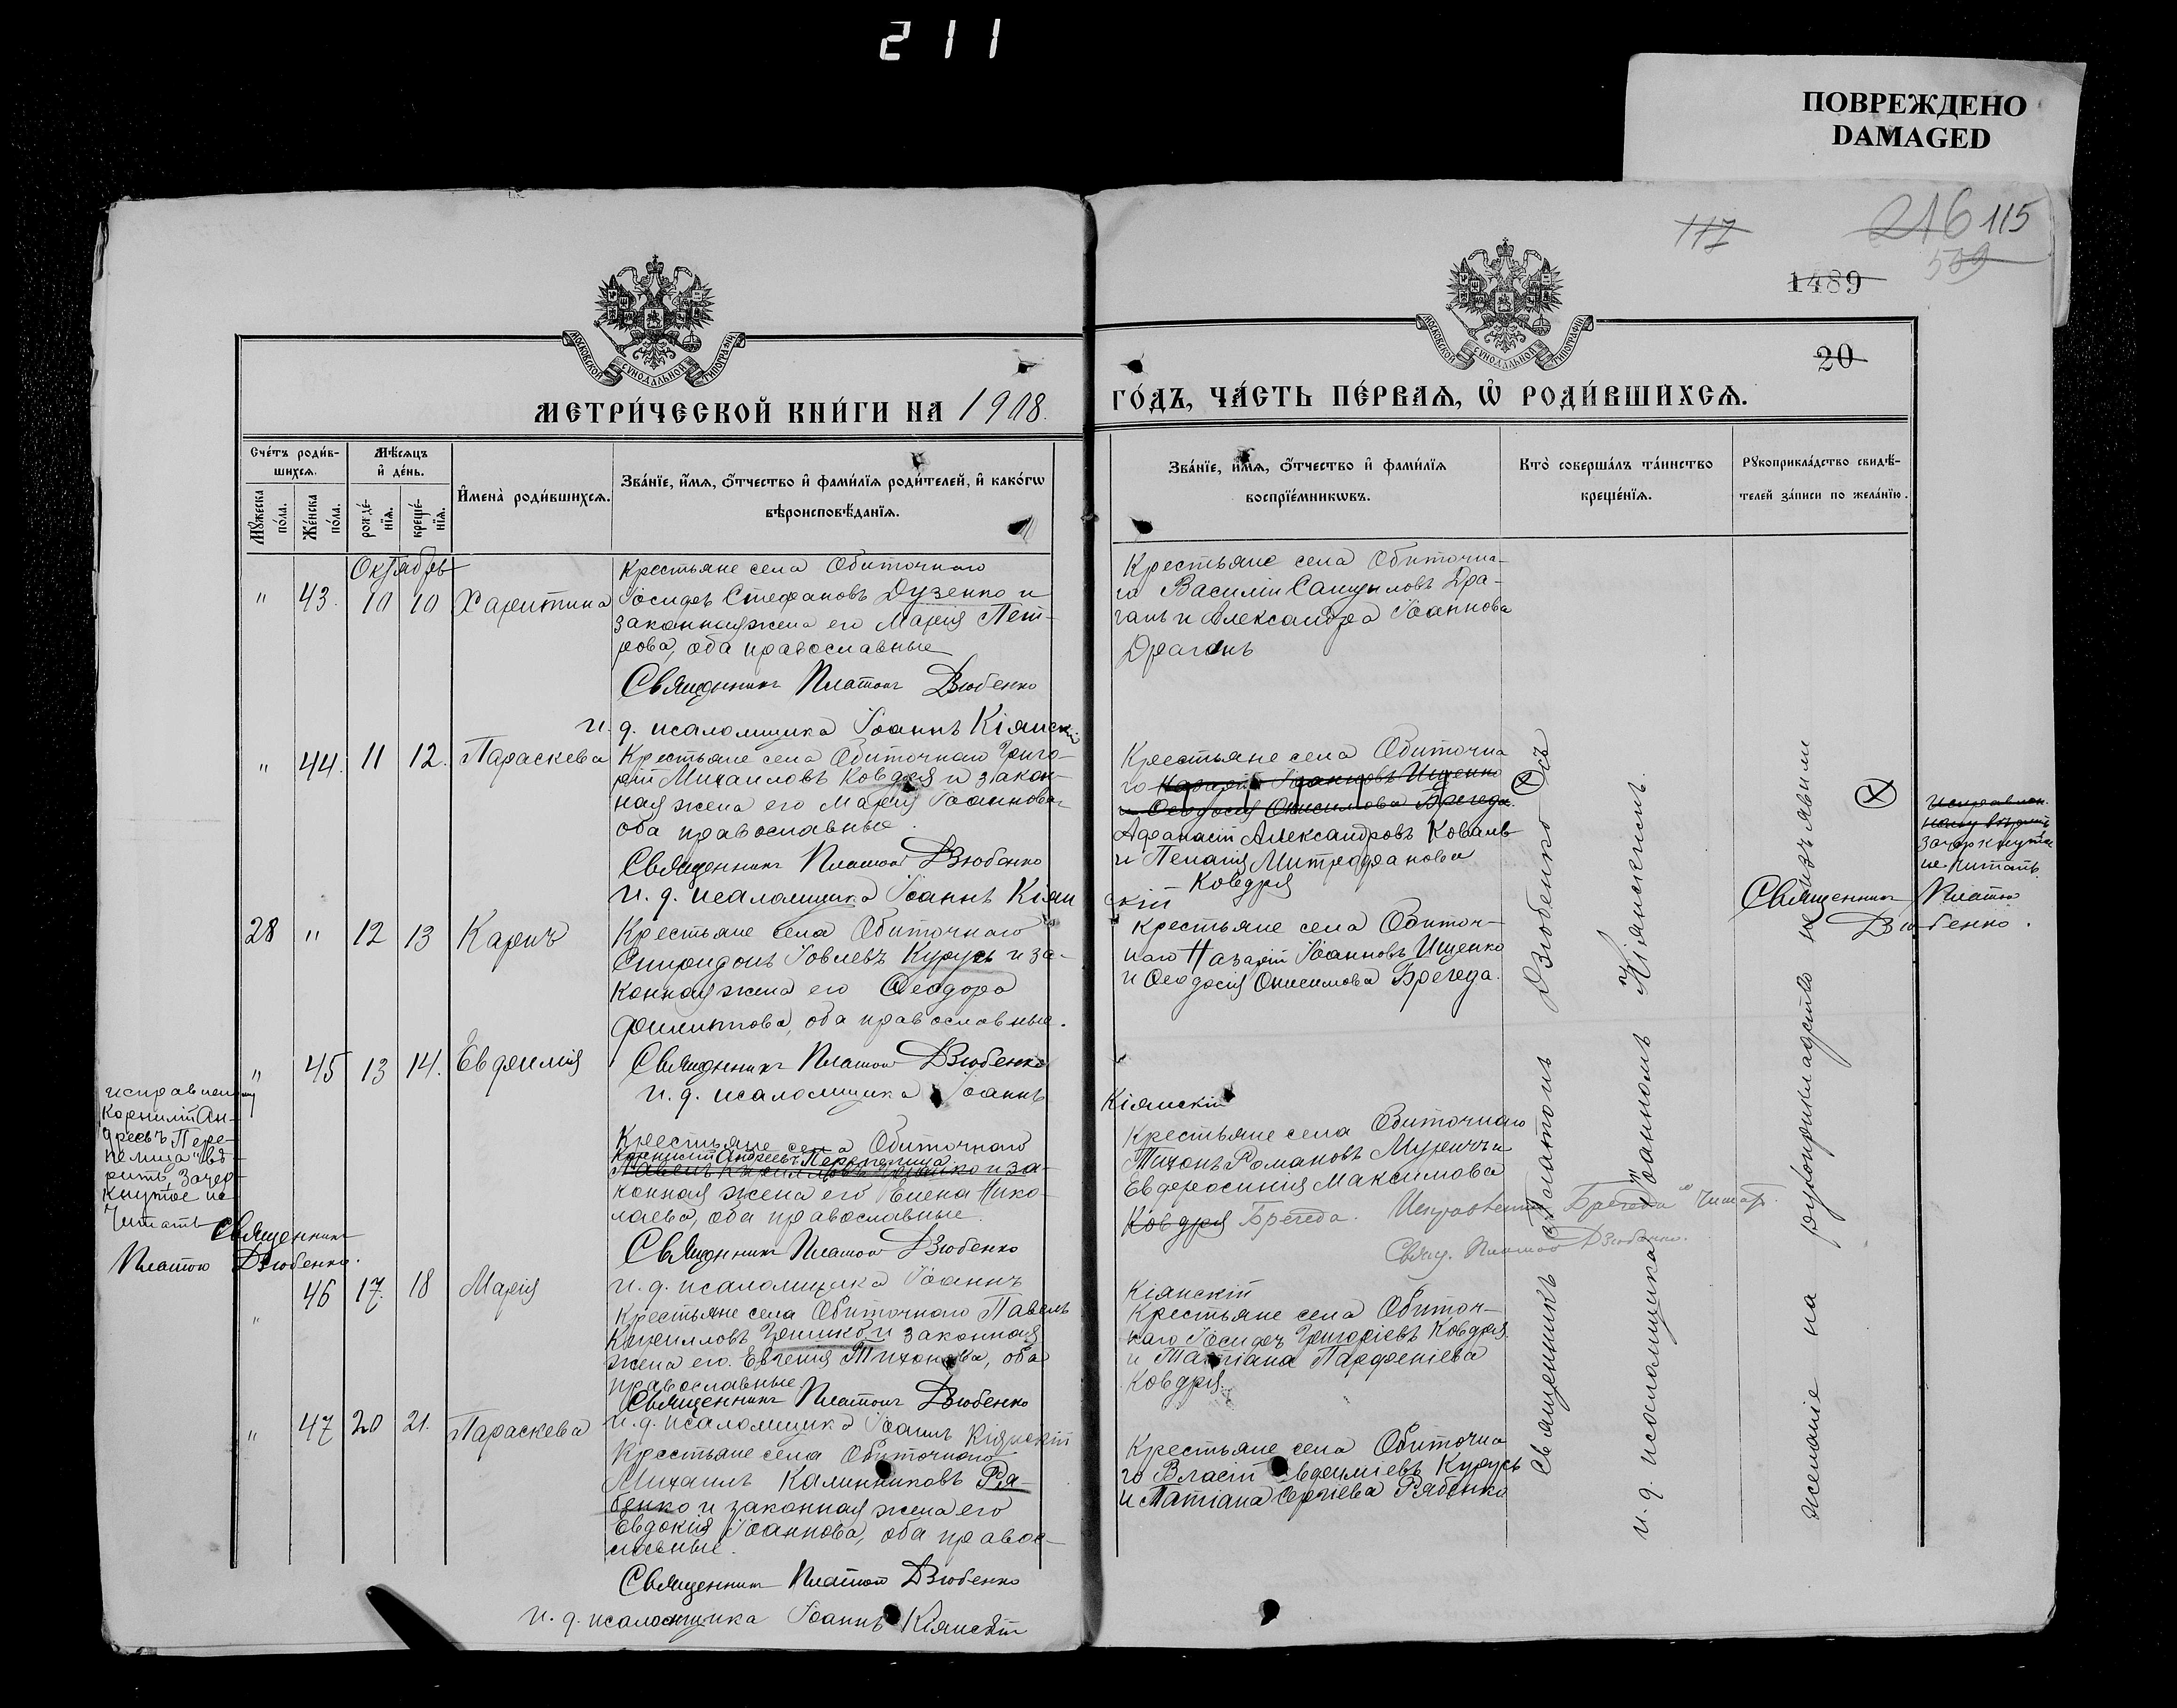 211
ПОВРЕЖДЕНО
DAMAGED
117
216 115
509
1489
20
МОСКОВСКОЙ СѴНОДАЛЬНОЙ ТИПОГРАФІИ
МОСКОВСКОЙ СѴНОДАЛЬНОЙ ТИПОГРАФІИ
МЕТРИ́ЧЕСКОЙ КНИ́ГИ НА 1908.
ГО́ДЪ, ЧА́СТЬ ПЕ́РВАѦ, Ѡ҆ РОДИ́ВШИХСѦ.
Сче́тъ роди́в-
шихсѧ.
Мꙋ́жеска по́ла.
Же́нска по́ла.
Мѣ́сѧцъ
и҆ де́нь.
рожде́-
нїѧ.
креще́-
нїѧ.
И҆мена̀ роди́вшихсѧ.
Зва́нїе, и҆́мѧ, ѻ҆́тчество и҆ фами́лїѧ роди́телей, и҆ како́гѡ
вѣроисповѣ́данїѧ.
Зва́нїе, и҆́мѧ, ѻ҆́тчество и҆ фами́лїѧ
воспрїе́мникѡвъ.
Кто̀ соверша́лъ та́инство
креще́нїѧ.
Рꙋкоприкла́дство свидѣ́-
телей за́писи по жела́нїю.
Октябрь
" 43. 10 10 Харитина
Крестьяне села Обиточнаго
Іосифъ Стефановъ Дузенко и
законная жена его Марія Пет-
рова, оба православные
Священникъ Платонъ Дзюбенко
и. д. псаломщика Іоаннъ Кіянскій
Крестьяне села Обиточна-
го Василій Самуиловъ Дра-
ганъ и Александра Іоаннова
Драганъ
" 44. 11 12. Параскева
Крестьяне села Обиточнаго Григо-
рій Михаиловъ Ковдря и закон-
ная жена его Марія Іоаннова
оба православные.
Священникъ Платонъ Дзюбенко
и. д. псаломщика Іоаннъ Кіян
скій
Крестьяне села Обиточна
го Назарій Іоанновъ Ищенко
и Ѳеодосія Онисимова Брегеда.
Афанасій Александровъ Коваль
и Пелагія Митрофанова
Ковдря
зачеркнутое
не читать.
Священникъ Платон
Дзюбенко.
28 " 12 13 Карпъ
Крестьяне села Обиточнаго
Спиридонъ Іовлевъ Курусь и за-
конная жена его Ѳеодора
Филиппова, оба православные.
Священникъ Платонъ Дзюбенко
и. д. псаломщика Іоаннъ
Кіянскій
Крестьяне села Обиточ-
наго Назарій Іоанновъ Ищенко
и Ѳеодосія Онисимова Брегеда.
" 45 13 14. Евфимія
исправленному
Корнилій Ан-
дреевъ Пере-
пелица вѣ-
рить, зачер
кнутое не
читать Священникъ
Платонъ Дзюбенко.
Крестьяне села Обиточнаго
Корнилій Андреевъ Перепелица
и за-
конная жена его Елена Нико-
лаева, оба православные.
Священникъ Платонъ Дзюбенко
и. д. псаломщика Іоаннъ
Кіянскій
Крестьяне села Обиточнаго
Тихонъ Романовъ Муричъ и
Евфросинія Максимова
Ковдря Брегеда. Исправленный "Брегеда" читать.
Свящ. Платонъ Дзюбенко.
" 46 17. 18 Марія
Крестьяне села Обиточнаго Павелъ
Кирилловъ Гришко и законная
жена его Евгенія Тихонова, оба
православные
Священникъ Платонъ Дзюбенко
и. д. псаломщика Іоаннъ Кіянскій
Крестьяне села Обиточ-
наго Іосифъ Григоріевъ Ковдря
и Татіана Парфеніева
Ковдря.
" 47 20 21. Параскева
Крестьяне села Обиточнаго
Михаилъ Калинниковъ Ря-
бенко и законная жена его
Евдокія Іоаннова, оба правос-
лавные.
Священникъ Платонъ Дзюбенко
и. д. псаломщика Іоаннъ Кіянскій
Крестьяне села Обиточна
го Власій Евфиміевъ Курусь
и Татіана Сергіева Рябенко
Священникъ Платонъ Дзюбенко съ
и. д. псаломщика Іоанномъ Кіянскимъ.
Желаніе на рукоприкладство не изъявили